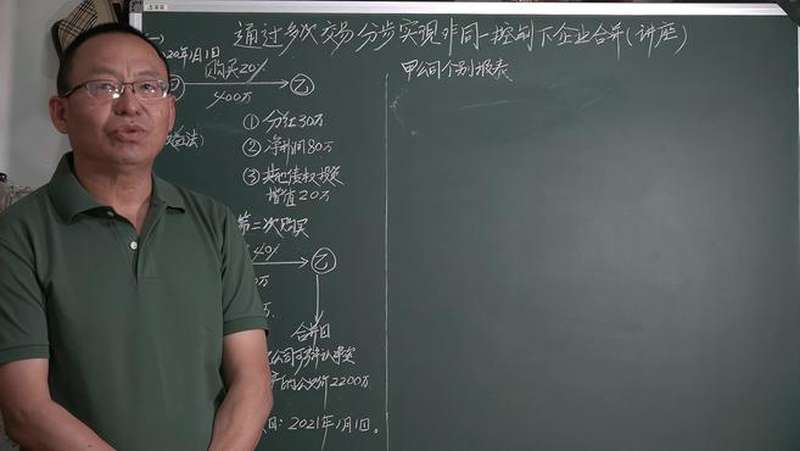 通过多次交易分步实现非同一控制下企业合并(讲座)
一)
20年1月1日
购买20%
乙
400万
益法)
① 分红30万
② 净利润80万
③ 其他债权投资
增值20万
第二次购买
40%
万
乙
万.
合并日
公司可辨认净资
产的公允价2200万
日: 2021年1月1日。
甲公司个别报表